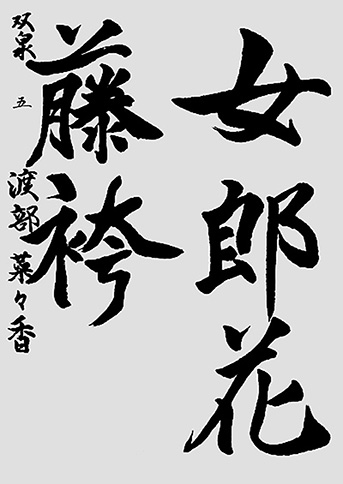 女郎花
藤袴
双泉 五 渡部菜々香